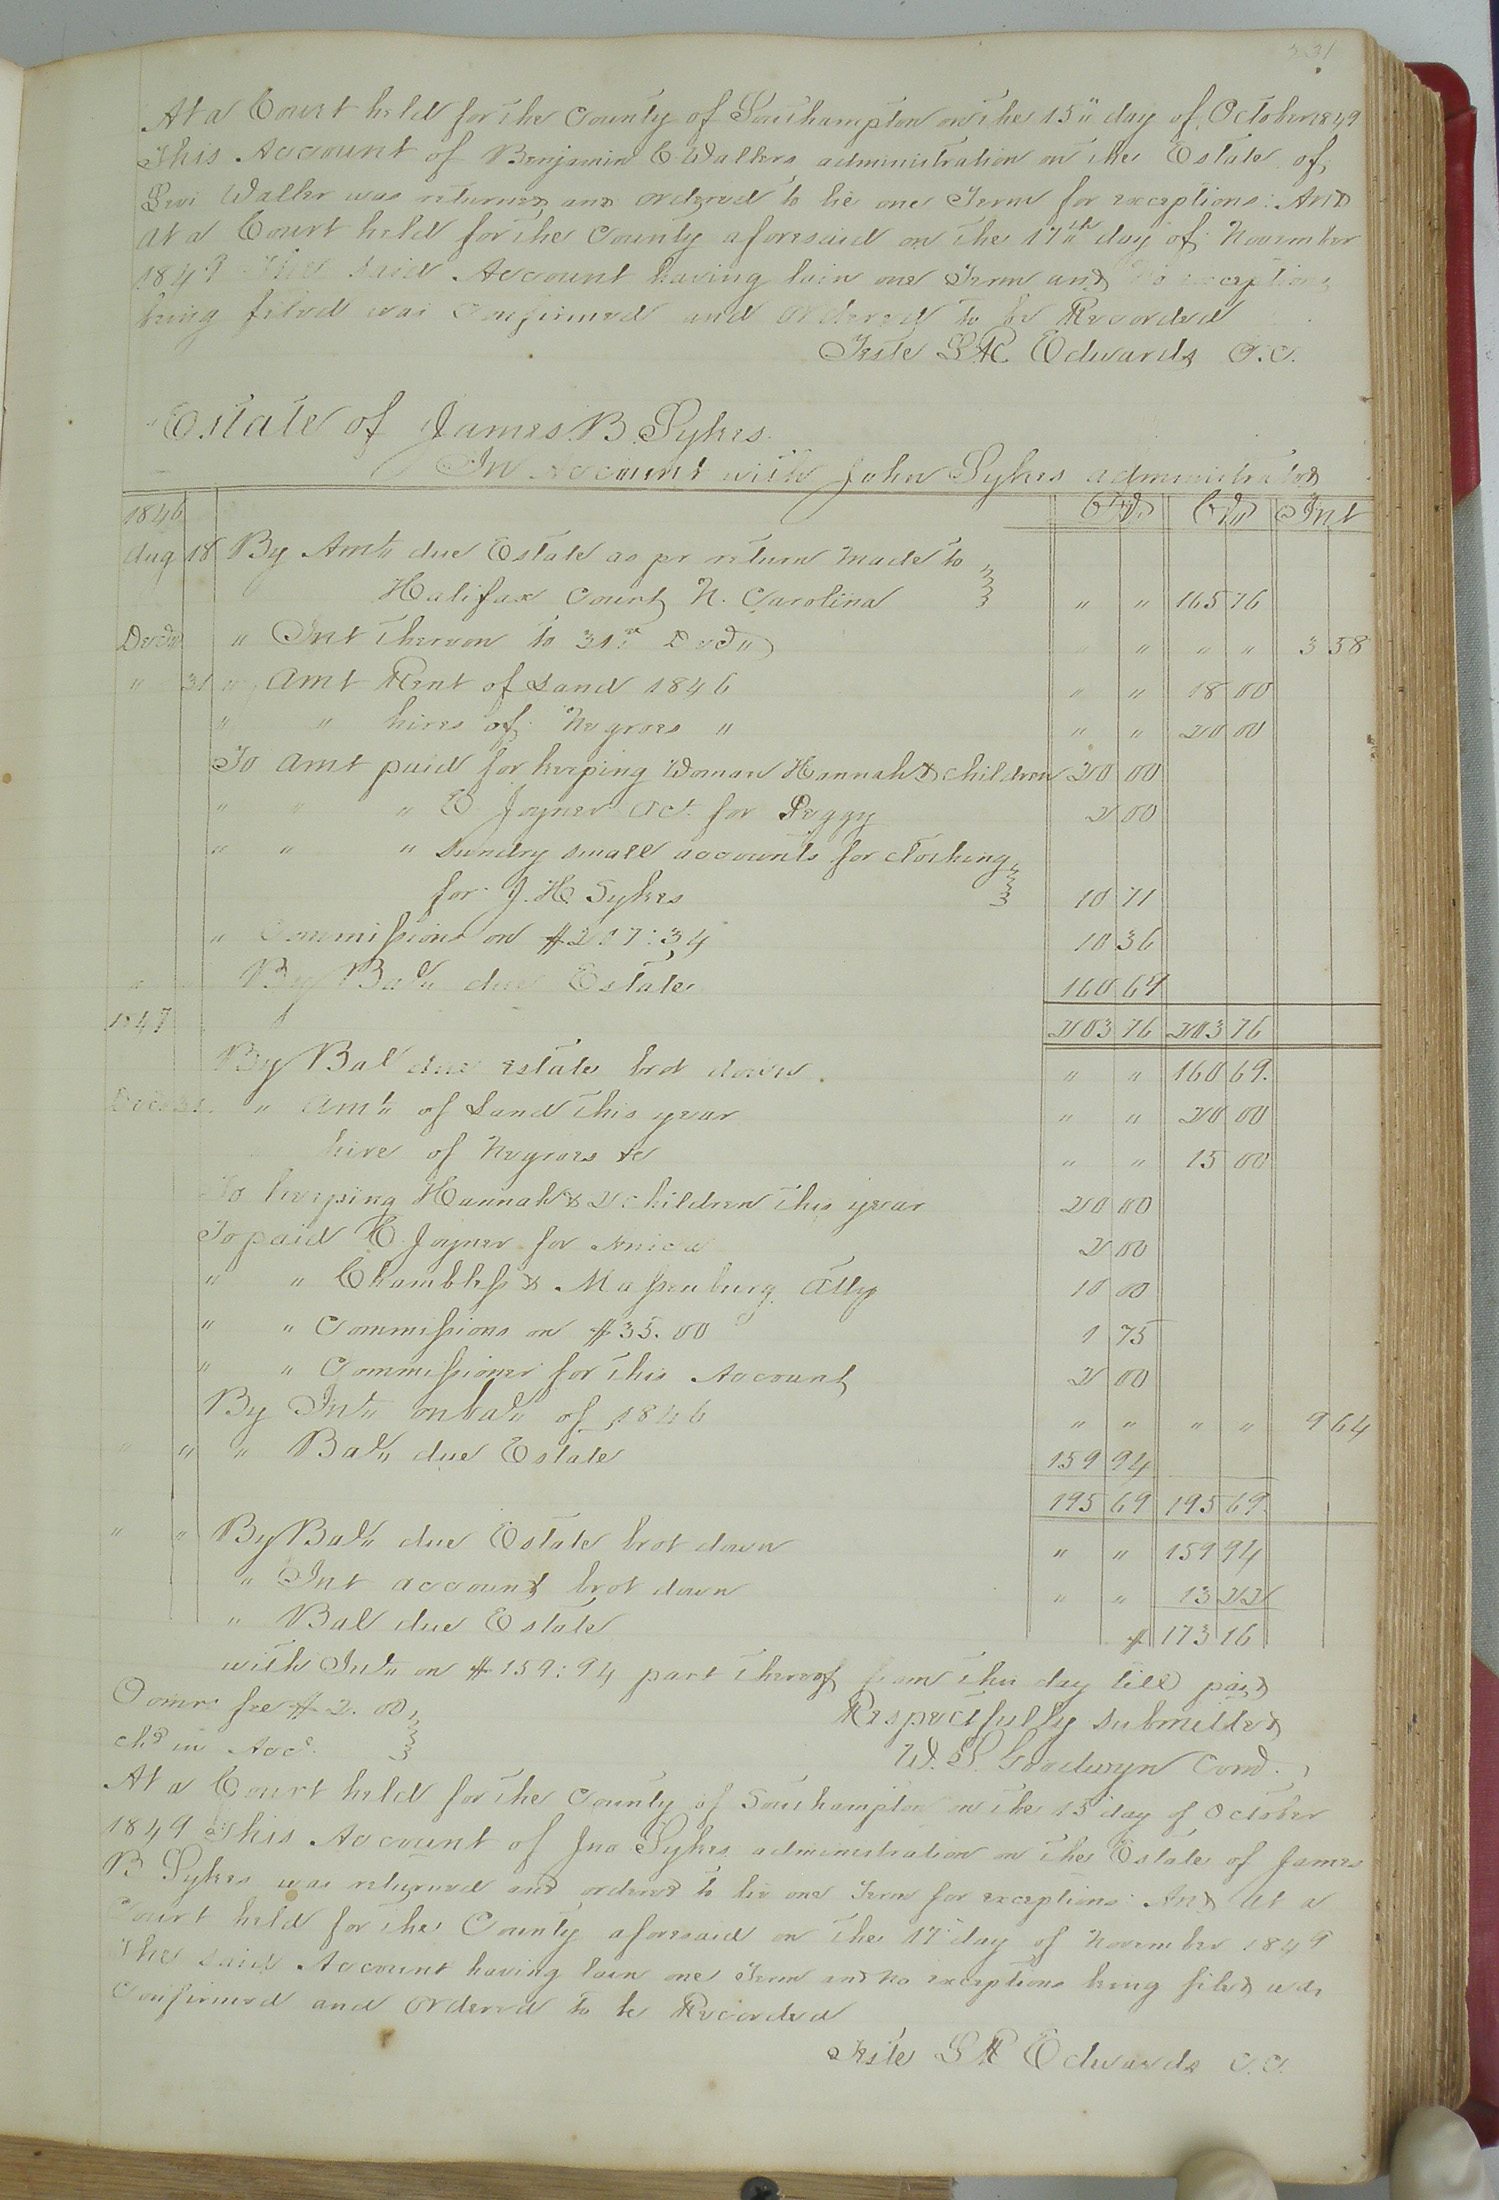 At a Court held for the County of Southampton on the 15" day of October 1849
This Account of Benjamin C Wallers administration on the Estate of
Levi Waller was returned and ordered to lie one Term for exceptions: And
at a Court held for the County aforesaid on the 17th day of November
1849 The said Account having lain one Term and no exceptions
being filed was Confirmed and Ordered to be Recorded
Teste L R Edwards C.C.
Estate of James B. Sykes
In Account with John Sykes administrator
1846 Cr Int
Aug 18 By Amt" due Estate as pr return made to
Halifax Court N. Carolina " " 165 76
Decr " Int thereon to 31st Decr " " " " 3 58
" 31 " Amt Rent of Land 1846 " " 18 00
" " hires of Negroes " " " 20 00
To Amt paid for keeping Woman Hannah & children 20 00
" " " E Joyner act. for Peggy 2 00
" " " sundry small accounts for clothing
for J. H. Sykes 10 71
" Commissions on $207:34 10 36
" By Bal" due Estate 160 69
1847 203 76 203 76
By Bal due estate brot down " " 160 69.
Decr 31. " Amt" of Land this year " " 20 00
hire of Negroes &c " " 15 00
To keeping Hannah & 2 children this year 20 00
To paid E. Joyner for Anica 2 00
" " Chambliss & Massenburg Atty 10 00
" " Commissions on $35.00 1 75
" " Commissioner for this Account 2 00
By Int" on bal" of 1846 " " " " 9 64
" " " Bal" due Estate 159 94
195 69 195 69.
" " By Bal" due Estate brot down " " 159 94
" Int account brot down " " 13 22
" Bal due Estate $ 173 16
with Int" on $159:94 part thereof from this day till paid
Comrs fee $2.00 Respectfully submitted
chd in Acct. W. S. Goodwyn Com.
At a Court held for the County of Southampton on the 15 day of October
1849 This Account of Jno Sykes administration on the Estate of James
B Sykes was returned and ordered to lie one Term for exceptions: And at a
Court held for the County aforesaid on the 17" day of November 1849
The said Account having lain one Term and no exceptions being filed was
Confirmed and Ordered to be Recorded
Teste L R Edwards C.C.